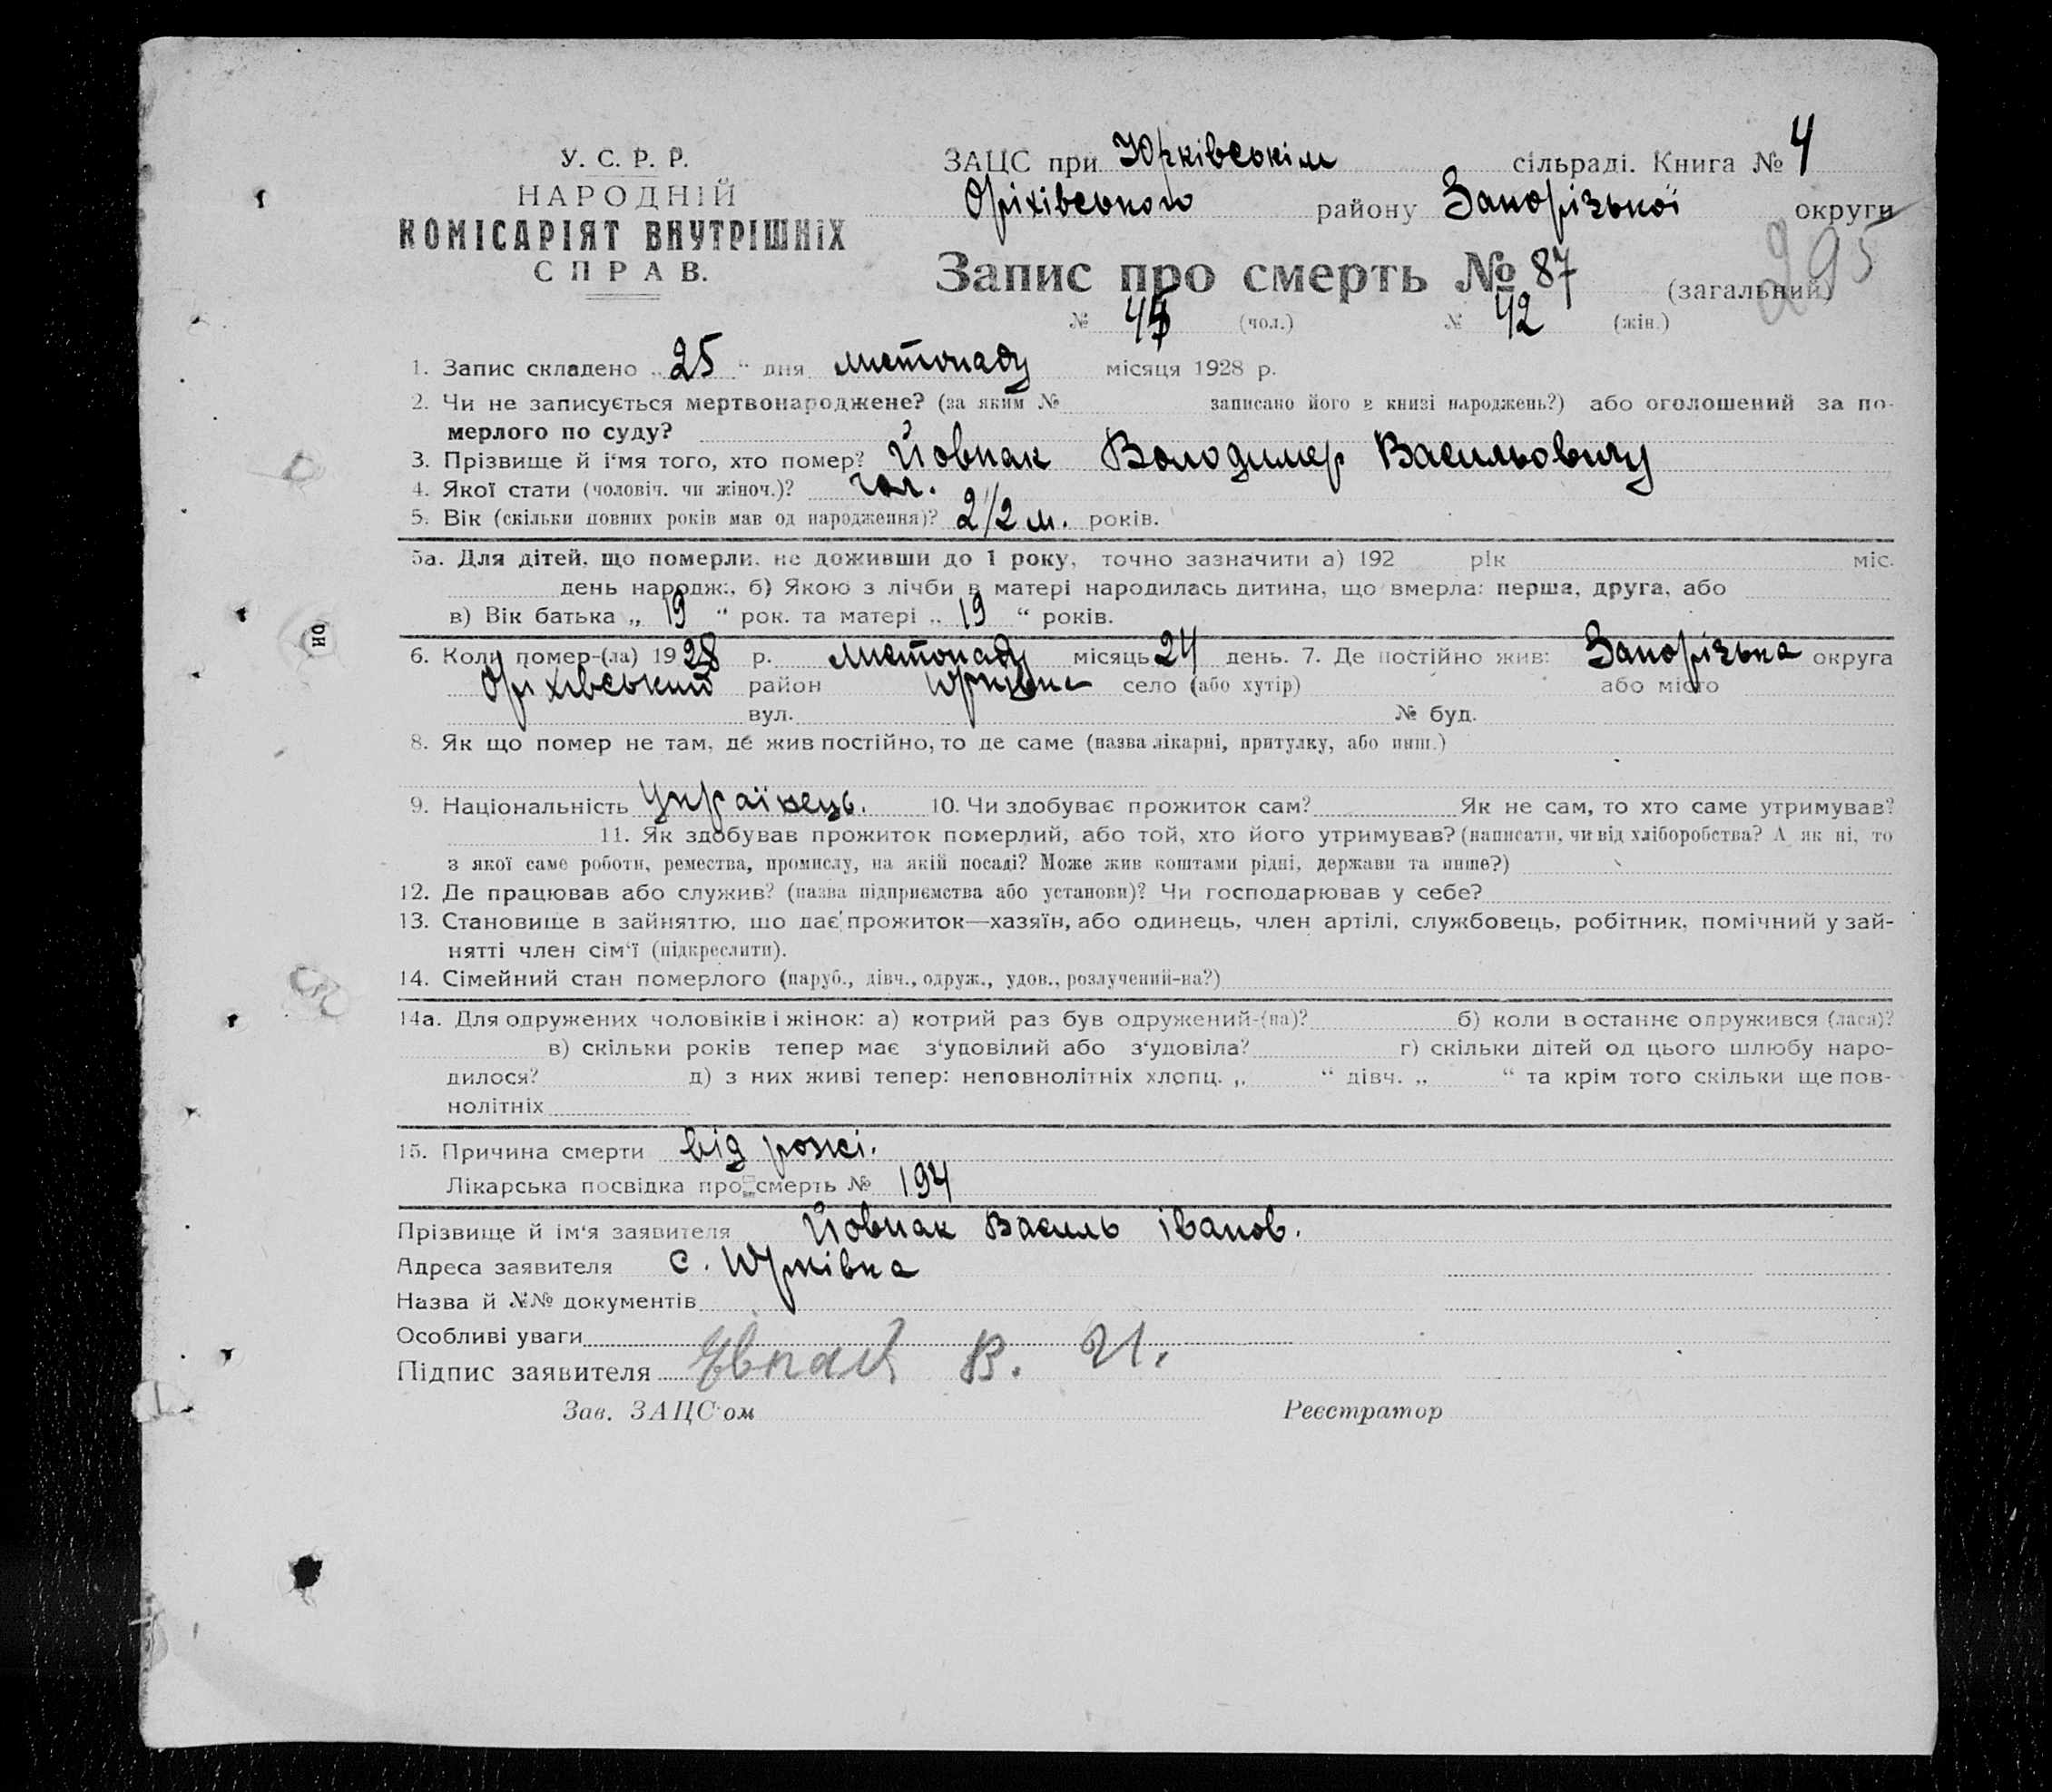 У. С. Р. Р.
НАРОДНІЙ
КОМІСАРІЯТ ВНУТРІШНІХ
СПРАВ.
ЗАЦС при Юрківськім сільраді. Книга № 4
Оріхівського району Запорізької округи
295
Запис про смерть № 87 (загальний)
№ 45 (чол.) № 42 (жін.)
1. Запис складено „ 25 “ дня листопаду місяця 1928 р.
2. Чи не записується мертвонароджене? (за яким № записано його в книзі народжень?) або оголошений за по-
мерлого по суду?
3. Прізвище й і'мя того, хто помер? Йовпак Володимер Васильовичу
4. Якої стати (чоловіч. чи жіноч.)? чол.
5. Вік (скільки повних років мав од народження)? 2 1/2 м. років.
5а. Для дітей, що померли, не доживши до 1 року, точно зазначити а) 192 рік міс.
день народж., б) Якою з лічби в матері народилась дитина, що вмерла: перша, друга, або
в) Вік батька „ 19 “ рок. та матері „ 19 “ років.
6. Коли помер-(ла) 1928 р. листопаду місяць 24 день. 7. Де постійно жив: Запорізька округа
Оріхівський район Юрківка село (або хутір) або місто
вул. № буд.
8. Як що помер не там, де жив постійно, то де саме (назва лікарні, притулку, або инш.)
9. Національність Українець. 10. Чи здобуває прожиток сам? Як не сам, то хто саме утримував?
11. Як здобував прожиток померлий, або той, хто його утримував? (написати, чи від хліборобства? А як ні, то
з якої саме роботи, ремества, промислу, на якій посаді? Може жив коштами рідні, держави та инше?)
12. Де працював або служив? (назва підприємства або установи)? Чи господарював у себе?
13. Становище в зайняттю, що дає прожиток—хазяїн, або одинець, член артілі, службовець, робітник, помічний у зай-
нятті член сім'ї (підкреслити).
14. Сімейний стан померлого (паруб., дівч., одруж., удов., розлучений-на?)
14а. Для одружених чоловіків і жінок: а) котрий раз був одружений-(на)? б) коли востаннє одружився (лася)?
в) скільки років тепер має з'удовілий або з'удовіла? г) скільки дітей од цього шлюбу наро-
дилося? д) з них живі тепер: неповнолітніх хлопц. „ “ дівч. „ “ та крім того скільки ще пов-
нолітніх
15. Причина смерти від рожі.
Лікарська посвідка про смерть № 194
Прізвище й ім'я заявителя Йовпак Василь Іванов.
Адреса заявителя с. Юрківка
Назва й №№ документів
Особливі уваги
Підпис заявителя Евпак В. И.
Зав. ЗАЦС'ом Реєстратор